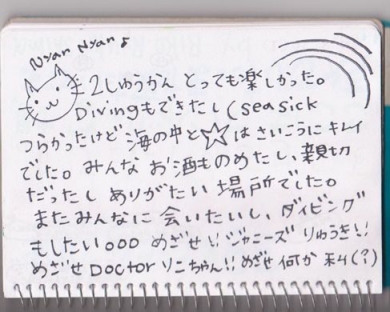 Nyan Nyan♪
2しゅうかん とっても楽しかった。
Divingもできたし(seasick
つらかったけど 海の中と☆はさいこうにキレイ
でした。みんな お酒ものめたし、親切
だったし ありがたい 場所でした。
またみんなに 会いたいし、ダイビング
もしたい。。。 めざせ!! ジャニーズ りゅうき!!
めざせ Doctor リこちゃん!! めざせ 何か 私(?)